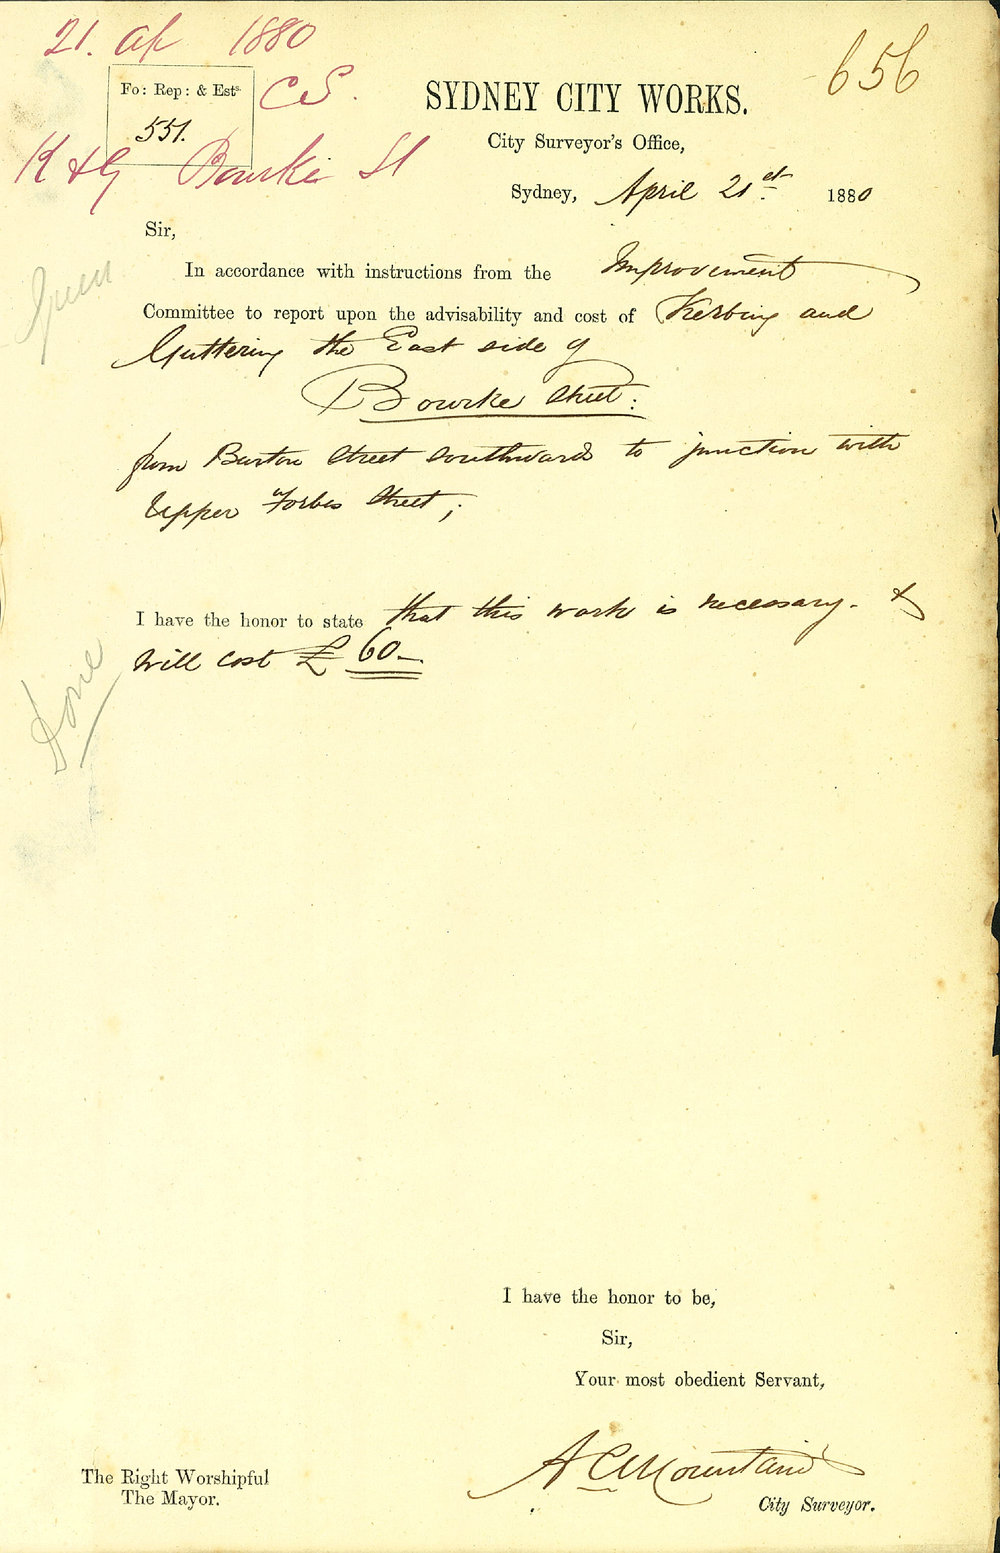 21. Ap 1880
656
Fo: Rep: & Ests.
551.
C S.
K & G Bourke St
SYDNEY CITY WORKS.
City Surveyor's Office,
Sydney, April 21st 1880
Sir,
In accordance with instructions from the Improvement
Committee to report upon the advisability and cost of Kerbing and
Guttering the East side of
Bourke Street:
from Burton Street Southward to junction with
Upper Forbes Street;
I have the honor to state that this work is necessary. &
will cost £ 60—.
Done
I have the honor to be,
Sir,
Your most obedient Servant,
A C Mountain
City Surveyor.
The Right Worshipful
The Mayor.